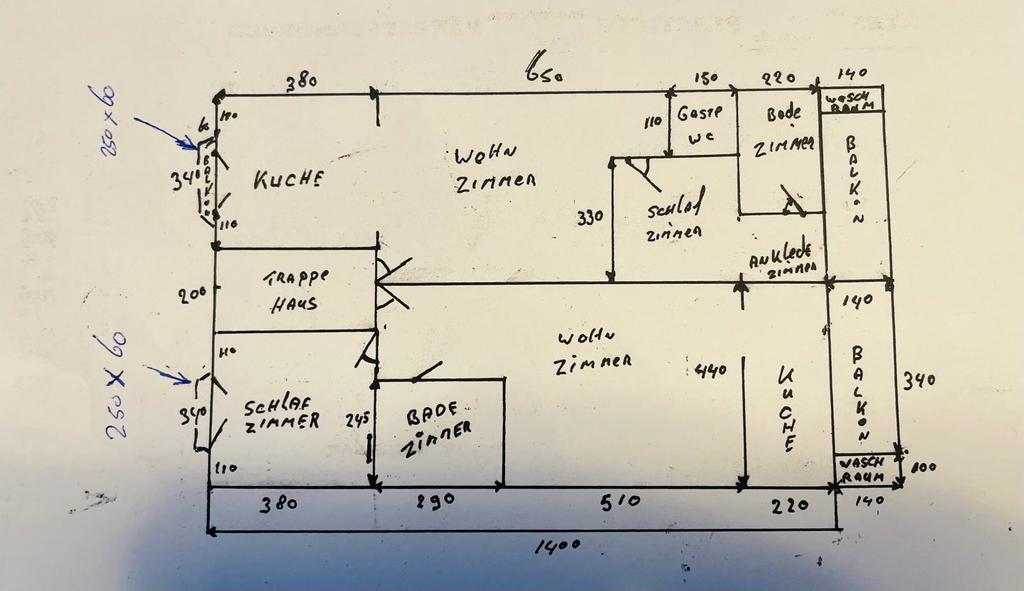 380
650
150
220
140
250 x 60
60
110
BALKON
340
110
KUCHE
WOHN
ZIMMER
110
GASTE
WC
BaDe
ZIMMER
WASCH
RAUM
BALKON
330
SCHLAF
ZIMMER
ANKleDe
ZIMMER
TRAPPE
HAUS
200
140
250 x 60
110
340
110
SCHLAF
ZIMMER
245
BADE
ZIMMER
WOHN
ZIMMER
440
KUCHE
BALKON
340
WASCH
RAUM
100
380
290
510
220
140
1400